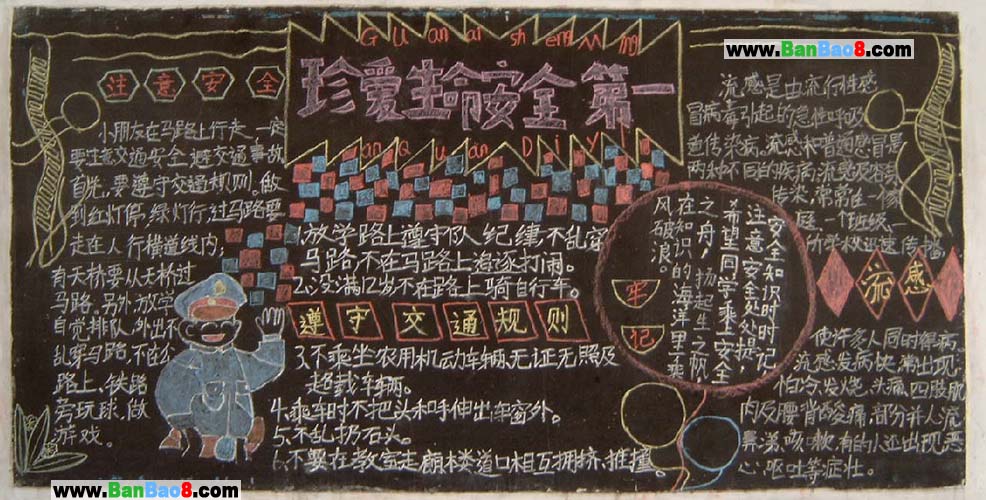 www.BanBao8.com
GuanaishengMing
珍爱生命安全第一
anQuanDiyi
注意安全
小朋友在马路上行走一定
要注意交通安全,避交通事故
首先,要遵守交通规则。做
到红灯停,绿灯行,过马路要
走在人行横道线内,
有天桥要从天桥过
马路。另外,放学
自觉排队,外出不
乱穿马路,不在公
路上、铁路
旁玩球、做
游戏。
1.放学路上遵守队纪律,不乱穿
马路,不在马路上追逐打闹。
2.没满12岁不在路上骑自行车。
遵守交通规则
3.不乘坐农用机动车辆,无证无照及
超载车辆。
4.乘车时不把头和手伸出车窗外。
5.不乱扔石头。
6.不要在教室走廊楼道口相互拥挤、推撞。
安全知识时时记,
注意安全处处提,
希望同学乘上安全
之舟,扬起生之帆
在知识的海洋里乘
风破浪。
牢
记
流感是由流行性感
冒病毒引起的急性呼吸
道传染病。流感和普通感冒是
两种不同的疾病,流感及容易
传染,常常在一个家
庭、一个班级、一
所学校迅速传播,
流感
使许多人同时得病。
流感发病快,常出现
怕冷发烧、头痛、四肢肌
肉及腰背酸痛,部分并人流
鼻涕、咳嗽,有的人还出现恶
心、呕吐等症壮。
www.BanBao8.com
www.BanBao8.com